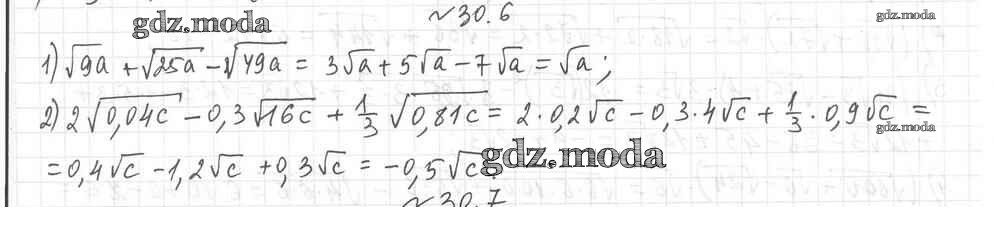 ~30.6
gdz.moda
gdz.moda
1) √9a + √25a - √49a = 3√a + 5√a - 7√a = √a;
2) 2√0,04c - 0,3√16c + 1/3 √0,81c = 2·0,2√c - 0,3·4√c + 1/3·0,9√c =
gdz.moda
= 0,4√c - 1,2√c + 0,3√c = -0,5√c.
gdz.moda
~30.7